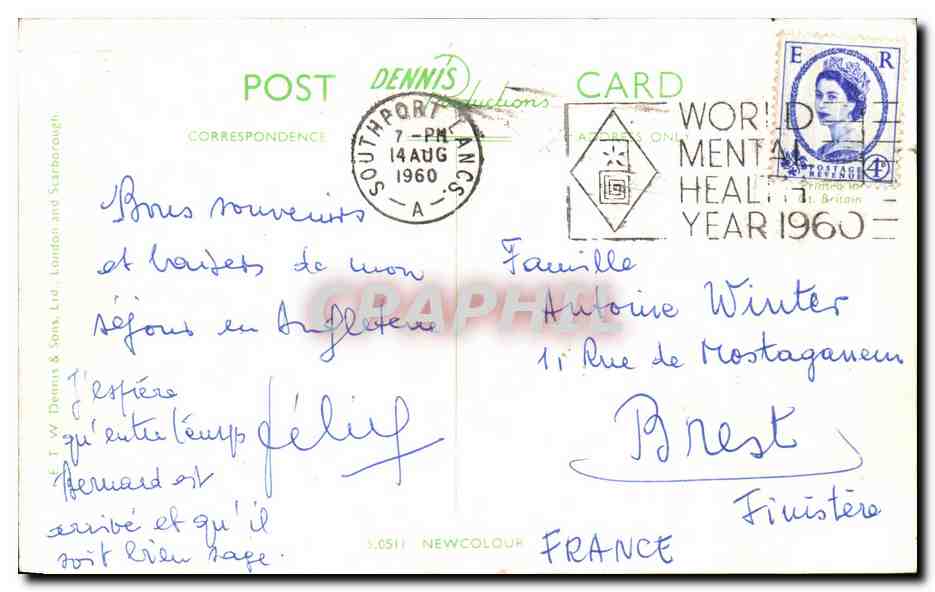 POST DENNIS Productions CARD
CORRESPONDENCE
ADDRESS ONLY
SOUTHPORT LANCS.
7 - PM
14 AUG
1960
- A -
WORLD
MENTAL
HEALTH
YEAR 1960
E R
POSTAGE
REVENUE
4D
Printed in
Gt. Britain
E. T. W. Dennis & Sons, Ltd., London and Scarborough.
Bons souvenirs
et baisers de mon
séjour en Angleterre
J'espère
qu'entre temps
Bernard est
arrivé et qu'il
soit bien sage.
Félix
Famille
Antoine Winter
11 Rue de Mostaganem
Brest
Finistère
FRANCE
S.0511 NEWCOLOUR
CPAPHIL